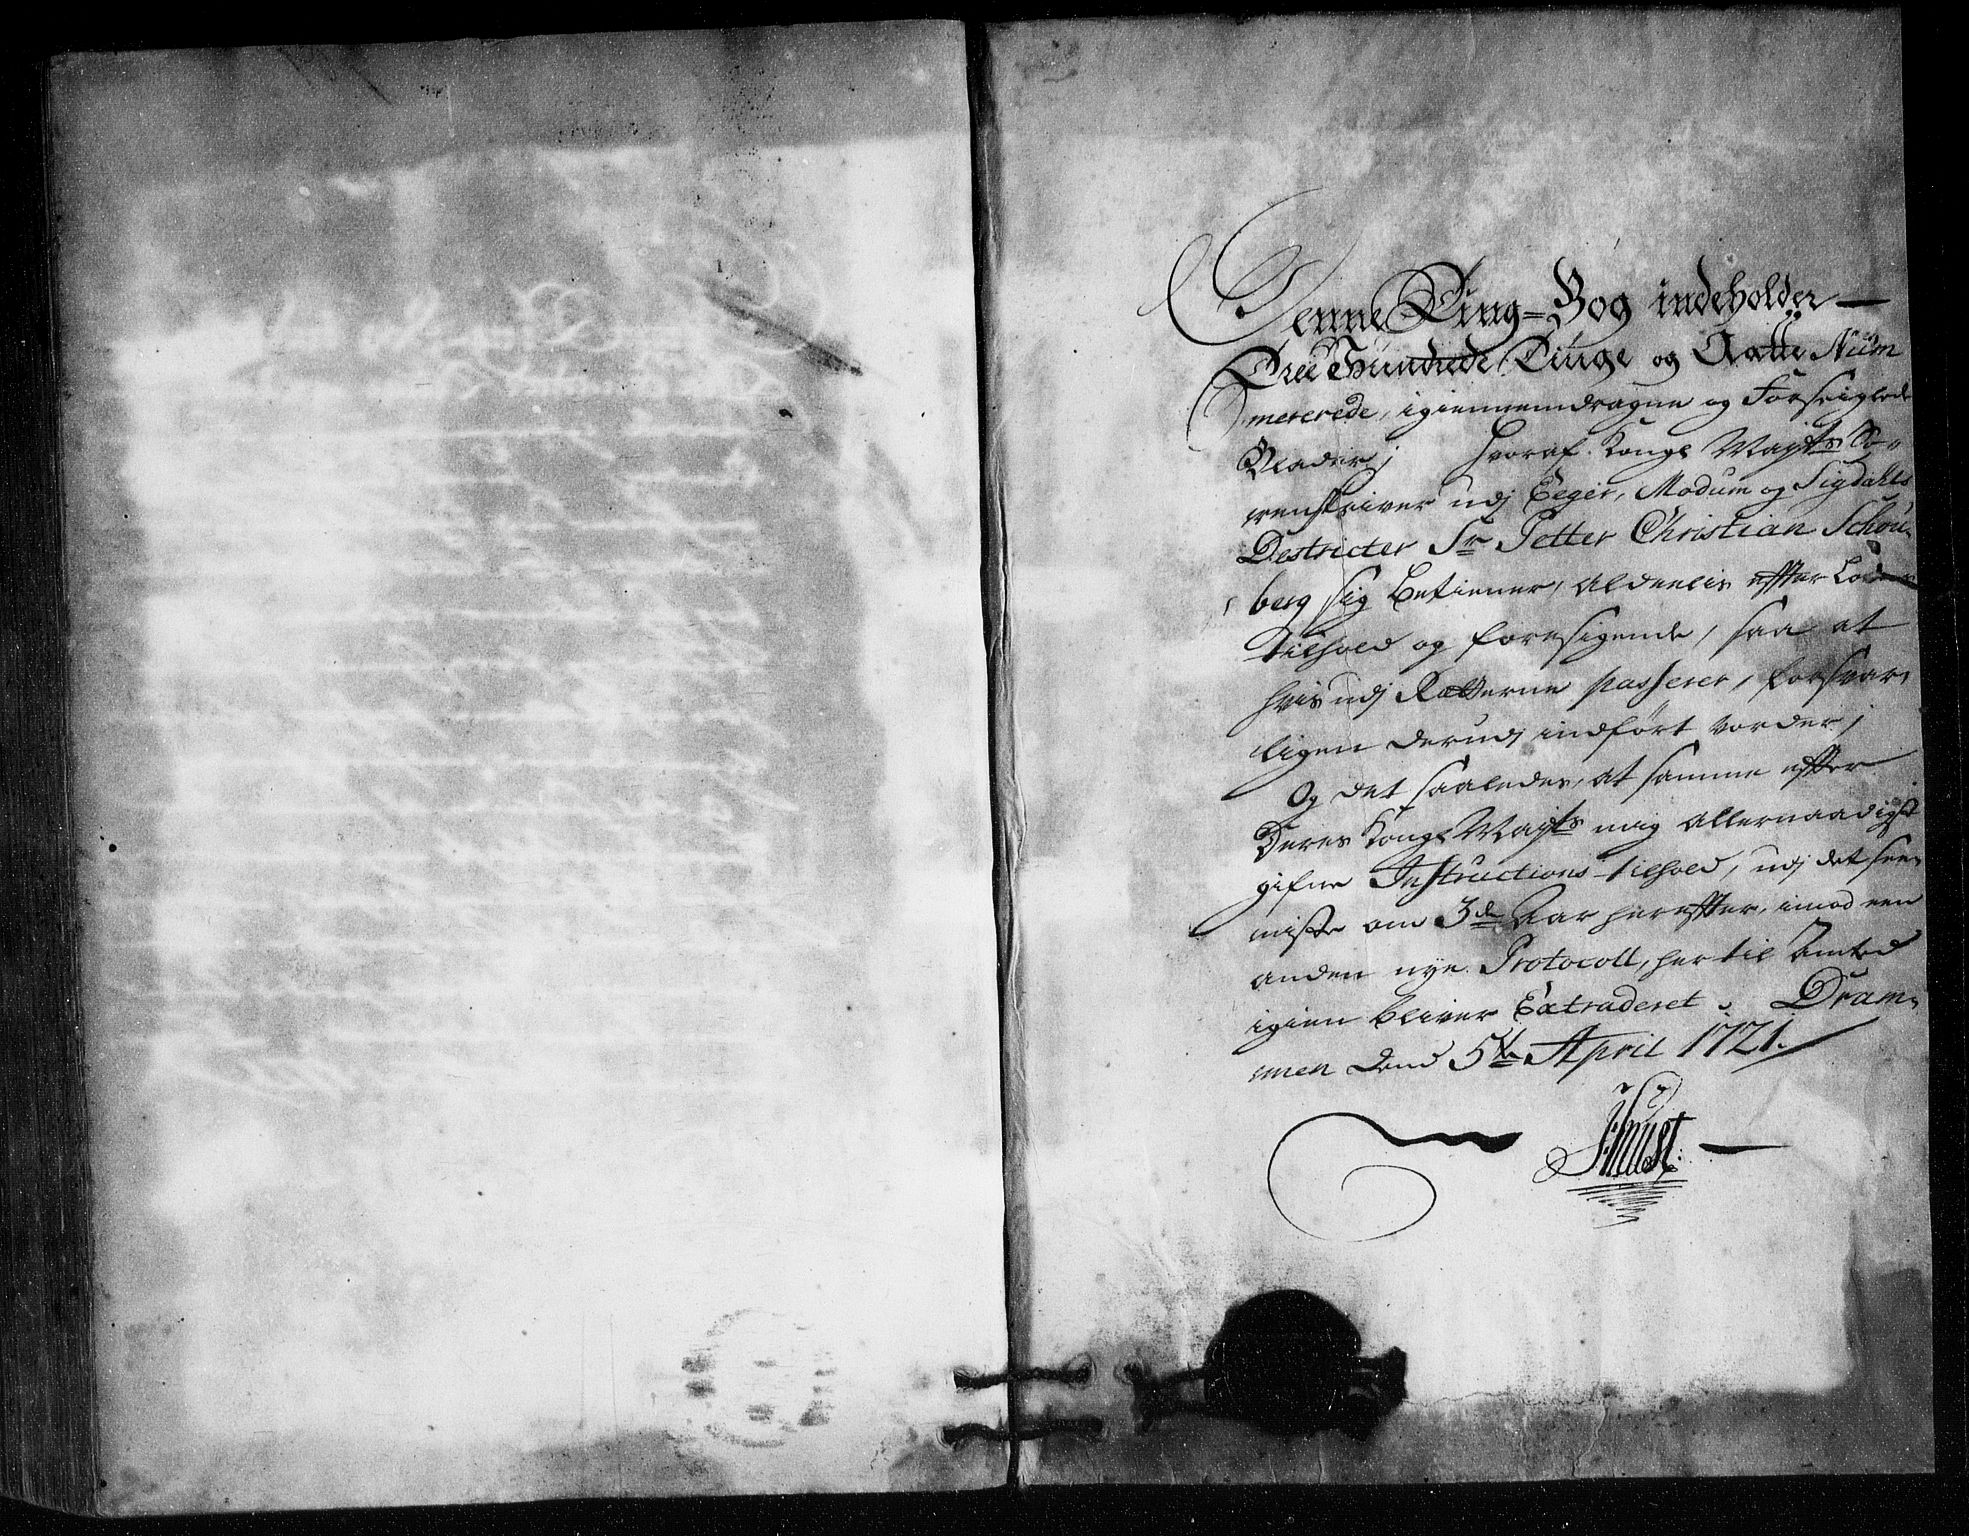 Denne Ting=Bog indeholder
Tree Hundrede Tiuge og Aatte Num
mererede, igiennemdragne og Forseiglede
Blader; hvoraf Kongl Mayts So-
renskriver udj Eeger, Modum og Sigdahls
Destricter Sr Petter Christian Schou-
berg sig betiener, aldeelis effter Lovens
tilhold og foresigende, saa at
hvis udj Rætterne passerer, forsvar,
ligen derudj indført vorder;
Og det saaledes, at samme effter
Deres Kongl Mayts mig allernaadigst
gifne Instructions tilhold, udj det see,
niste om 3de Aar hereffter, imod een
anden nye Protocoll, her til Amted
igien bliver Extraderet. Dram,
men dend 5te April 1721.